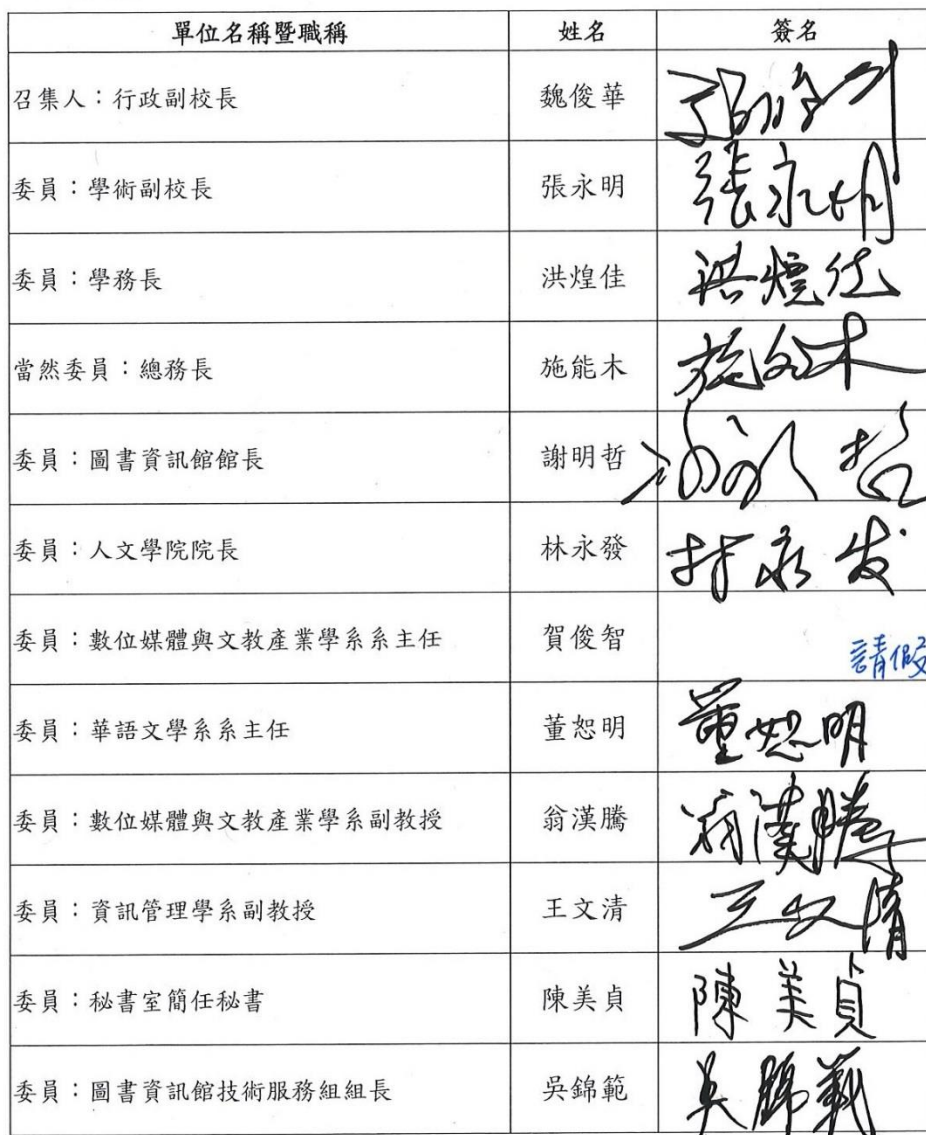 單位名稱暨職稱 姓名 簽名
召集人：行政副校長 魏俊華
委員：學術副校長 張永明 張永明
委員：學務長 洪煌佳 洪煌佳
當然委員：總務長 施能木 施能木
委員：圖書資訊館館長 謝明哲
委員：人文學院院長 林永發 林永发
委員：數位媒體與文教產業學系系主任 賀俊智 請假
委員：華語文學系系主任 董恕明 董恕明
委員：數位媒體與文教產業學系副教授 翁漢騰 翁漢騰
委員：資訊管理學系副教授 王文清 王文清
委員：秘書室簡任秘書 陳美貞 陳美貞
委員：圖書資訊館技術服務組組長 吳錦範 吳錦範